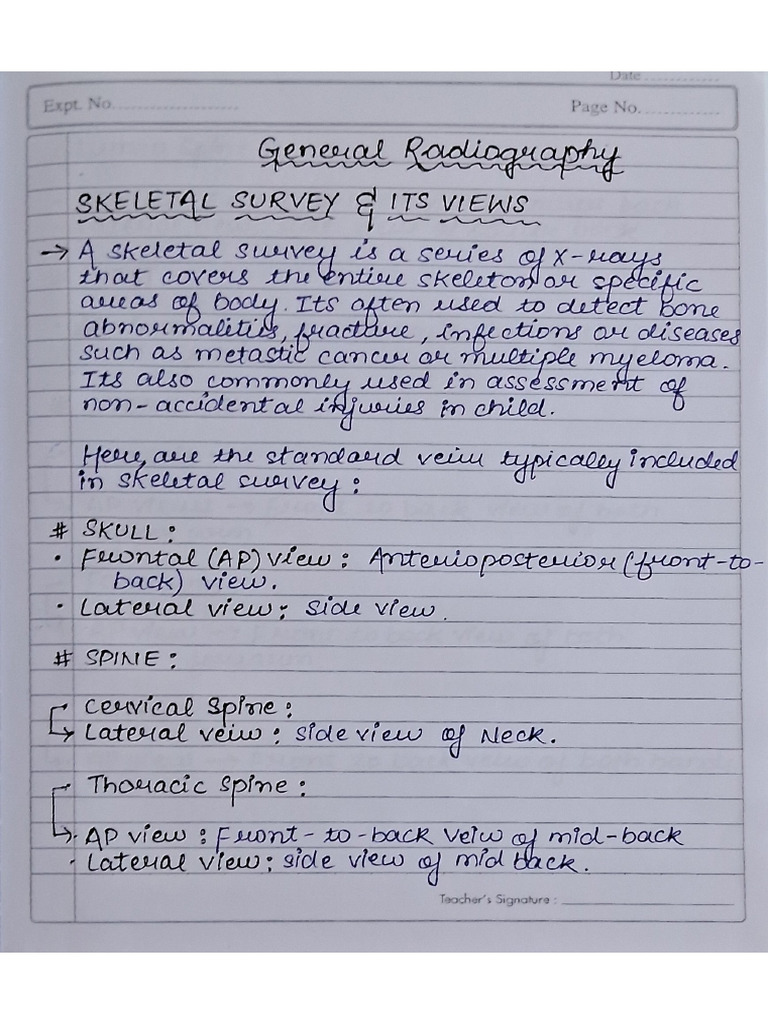 Date ............
Expt. No. ....................
Page No. .............
General Radiography
SKELETAL SURVEY & ITS VIEWS
→ A skeletal survey is a series of X-rays
that covers the entire skeleton or specific
areas of body. Its often used to detect bone
abnormalities, fracture, infections or diseases
such as metastic cancer or multiple myeloma.
Its also commonly used in assessment of
non-accidental injuries in child.
Here, are the standard veiw typically included
in skeletal survey:
# SKULL:
• Frontal (AP) view: Anterioposterior (front-to-
back) view.
• Lateral view: side view.
# SPINE:
Cervical Spine:
→ Lateral veiw: side view of Neck.
Thoracic Spine:
→• AP view: Front-to-back veiw of mid-back
• Lateral view: side view of mid back.
Teacher's Signature : ____________________